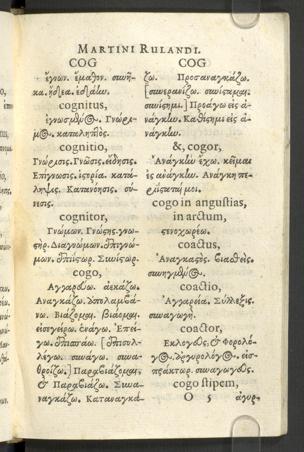 MARTINI RULANDI.
COG
ἔγνων. ἔμαθον. συνῆ-
κα.
cognitus,
καταληπτός.
cognitio,
Γνώρισις. Γνῶσις. εἴδησις.
Ἐπίγνωσις. ἱστορία. κατά-
ληψις. Κατανόησις. σύ-
νεσις.
cognitor,
Γνώμων. Γνώσης. γνω-
Διαγνώμων. ἐπιγνώ-
μων. ἐπίϊστωρ. Συνίστωρ.
cogo,
Ἀγγαρεύω. ἀεκάζω.
Ἀναγκάζω. ὑπολαμβά-
νω. Βιάζομαι. βιάομαι.
εἰσαγείρω. ἐνάγω. Ἐπεί-
γω. [ἐπισυλ-
λέγω. συνάγω. συνα-
θροίζω.] Παραβιάζομαι.
& Παραβιάζω. Συνα-
ναγκάζω. Καταναγκά-
COG
ζω. Προσαναγκάζω.
[συνερανίζω. συνίσταμαι.
συνίστημι.] Προάγω εἰς ἀ-
νάγκην. Καθίστημι εἰς ἀ-
νάγκην.
&, cogor,
Ἀνάγκην ἔχω. κεῖμαι
εἰς ἀνάγκην. Ἀνάγκη πε-
ρίσταταί μοι.
cogo in angustias,
in arctum,
στενοχωρέω.
coactus,
Ἀναγκαστός. βιασθείς.
συνηγμένος.
coactio,
Ἀγγαρεία. Σύλλεξις.
συναγωγή.
coactor,
Ἐκλογεύς, & φορολό-
γος. ἀργυρολόγος. εἰσ-
πράκτωρ. συναγωγεύς.
cogo stipem,
O 5 ἀγυρ-